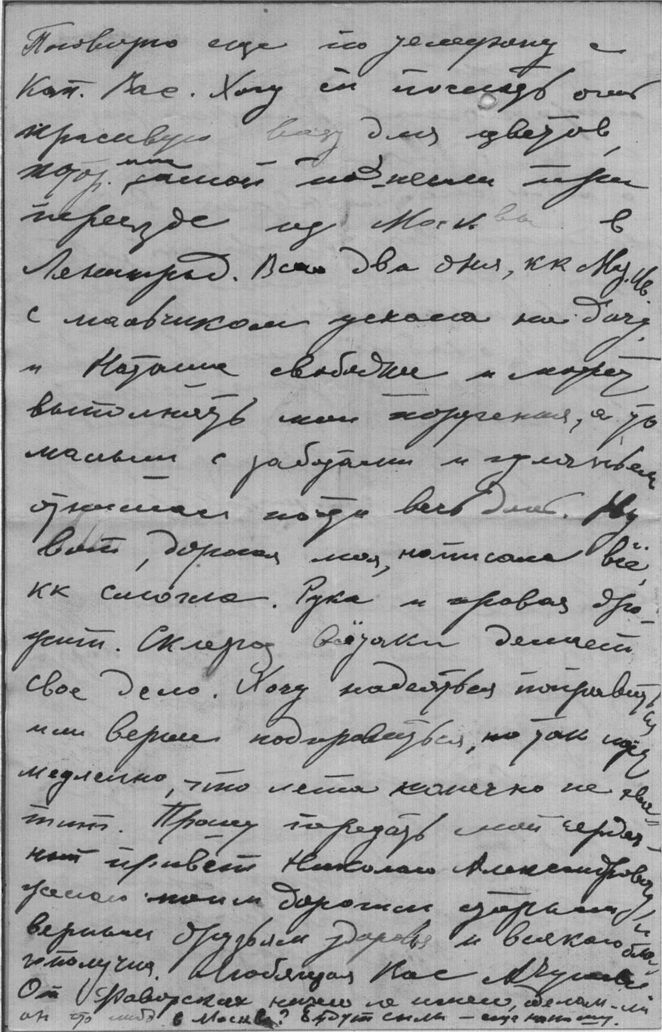 Поговорю еще по телефону с
Кат. Вас. Хочу ей послать очень
красивую вазу для цветов,
котор. мне поднесли при
переезде из Москвы в
Ленинград. Всего два дня, кк Map. Ив.
с мальчиком уехала на дачу,
и Наташа свободнее и может
выполнять мои поручения, а то
малыш с заботами и гуляньем
отнимал почти весь день. Ну
вот, дорогая моя, написала всё,
кк смогла. Рука и правая дро-
жит. Склероз всётаки делает
свое дело. Хочу надеяться поправиться
или вернее подправиться, но так идет
медленно, что лета конечно не хва-
тит. Прошу передать мой сердеч-
ный привет Николаю Александровичу
желаю моим дорогим старым и
верным друзьям здоровья и всякого бла-
гополучия. Любящая Вас
От Фаворских ничего не имею,
он в Москве? Будут силы – еще напишу.